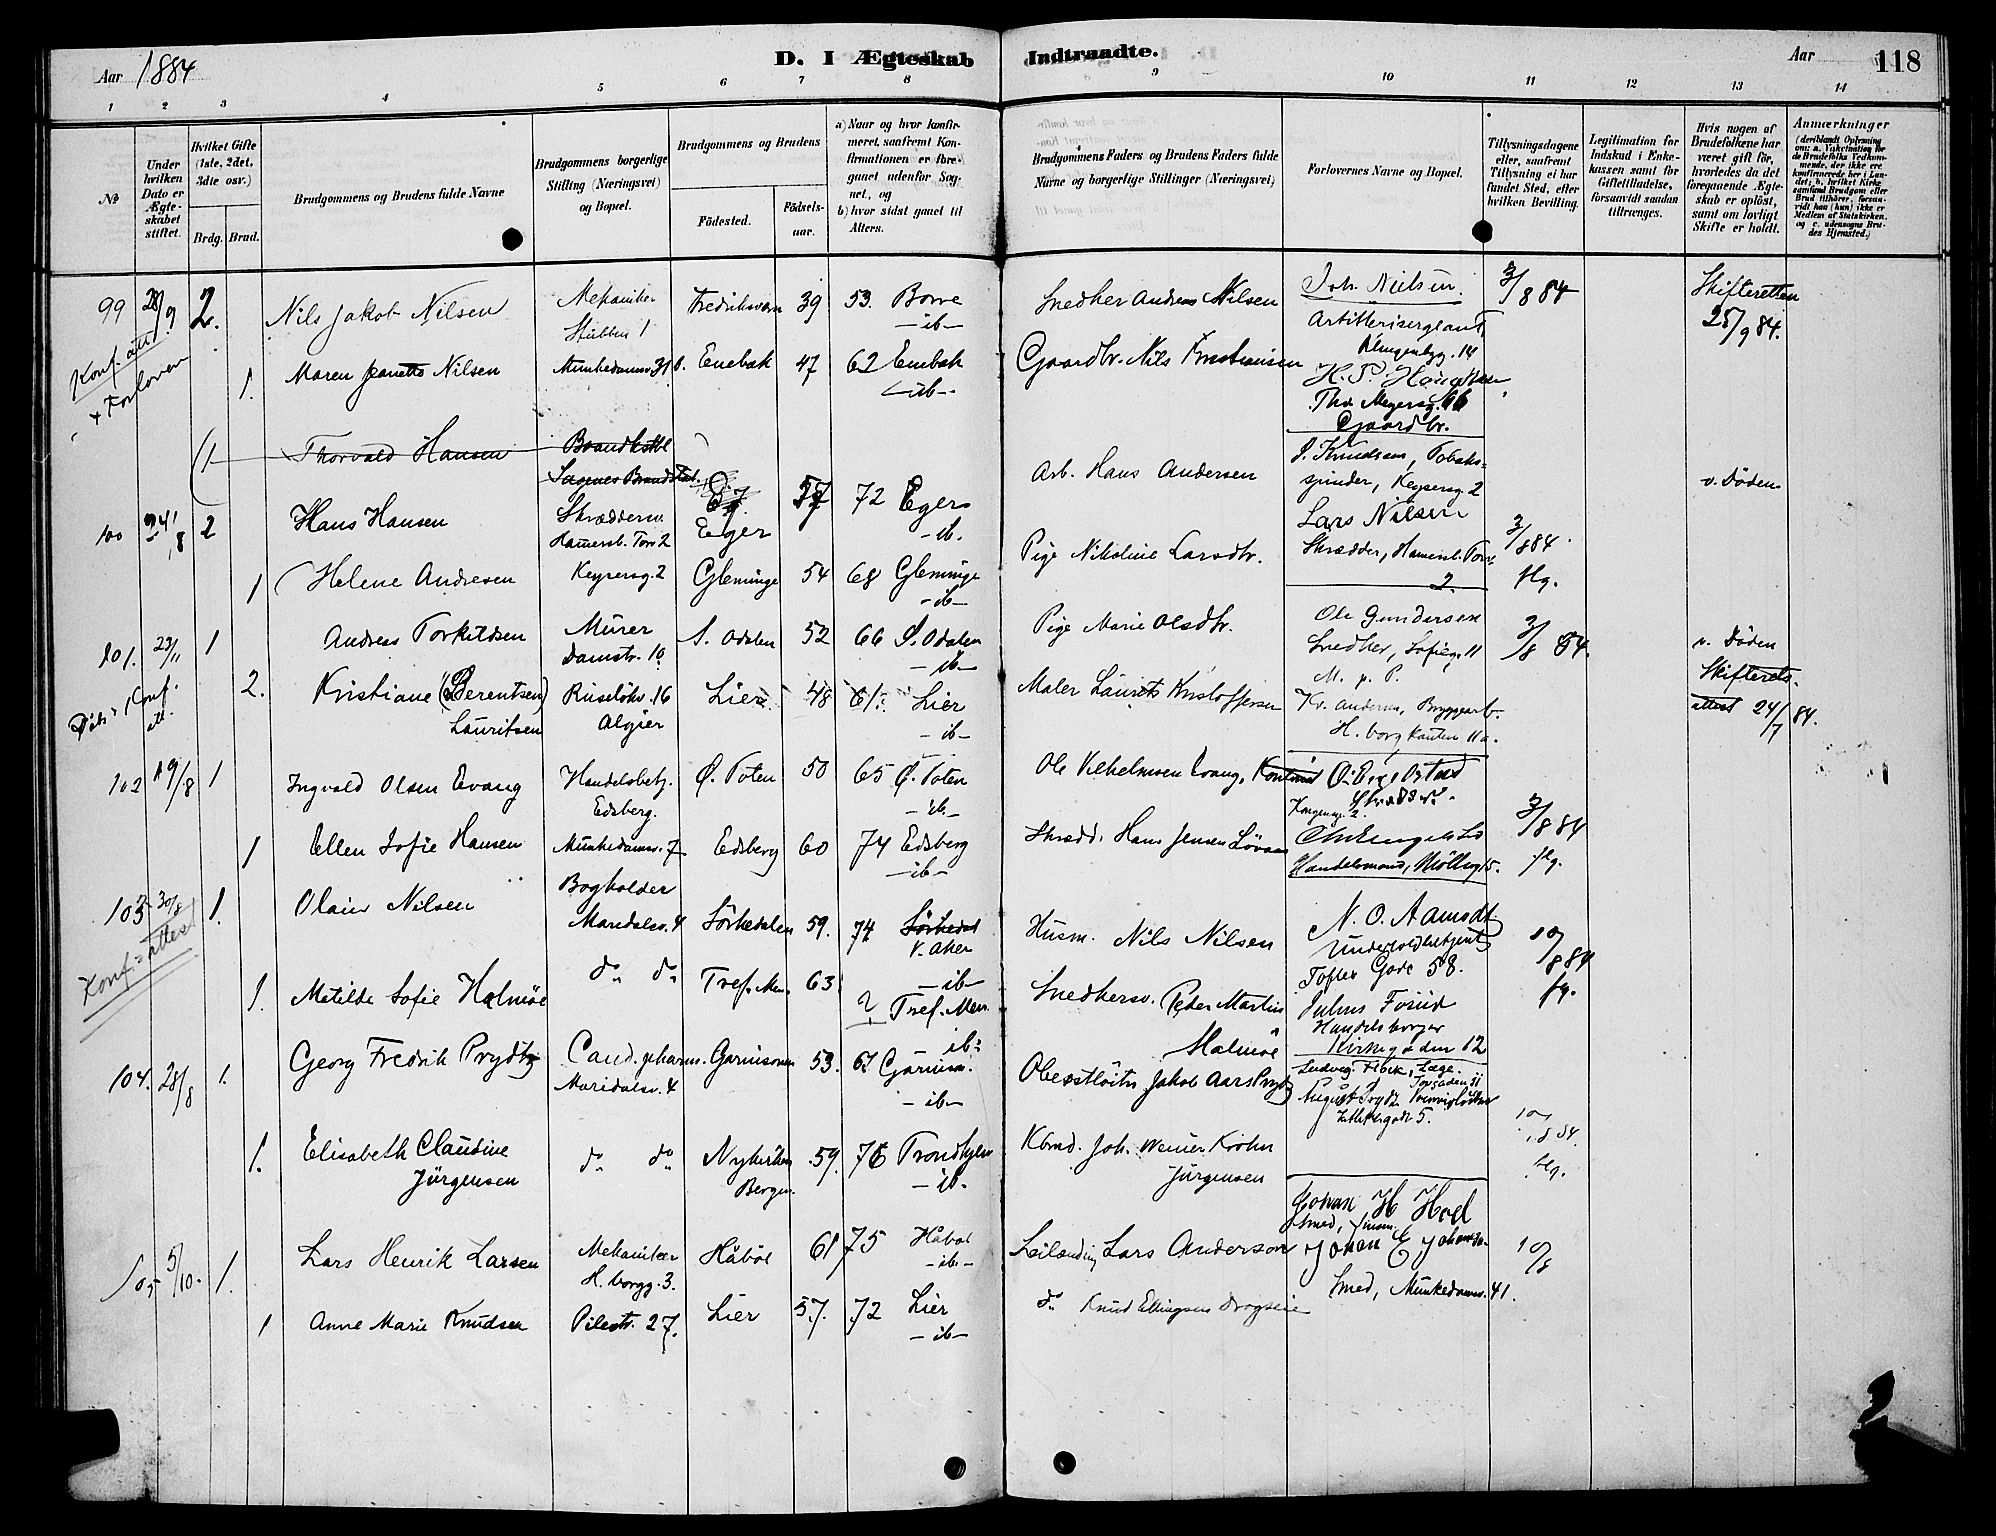 Aar 1884
D. I Ægteskab Indtraadte.
Aar 118
1 2 3 4 5 6 7 8 9 10 11 12 13 14
№
Under hvilken Dato er Ægteskabet stiftet.
Hvilket Gifte (1ste, 2det, 3die osv.)
Brdg. Brud.
Brudgommens og Brudens fulde Navne
Brudgommens borgerlige Stilling (Næringsvei) og Bopæl.
Brudgommens og Brudens
Fødested.
Fødselsaar.
a) Naar og hvor konfirmeret, saafremt Konfirmationen er foregaaet udenfor Sognet, og
b) hvor sidst gaaet til Alters.
Brudgommens Faders og Brudens Faders fulde Navne og borgerlige Stillinger (Næringsvei)
Forlovernes Navne og Bopæl.
Tillysningsdagene eller, saafremt Tillysning ei har fundet Sted, efter hvilken Bevilling.
Legitimation for Indskud i Enkekassen samt for Giftetilladelse, forsaavidt saadan tiltrænges.
Hvis nogen af Brudefolkene har været gift før, hvorledes da det foregaaende Ægteskab er opløst, samt om lovligt Skifte er holdt.
Anmærkninger
(deriblandt Oplysning om: a. Vakcination for de Brudefolks Vedkommende, der ikke ere konfirmerede her i Landet; b. hvilket Kirkesamfund Brudgom eller Brud tilhører, forsaavidt han (hun) ikke er Medlem af Statskirken, og c. udensogns Brudes Hjemsted.)
99 28/9 2. Nils Jakob Nilsen Mekaniker Stubben 1 Fredriksværn 39 53. Borre
-ib-
Snedker Andreas Nilsen Joh. Nielsen. 3/8 84 Skifteretten 25/9 84.
Artillerisergeant
Klingenbgg. 14
Konf. att.
+ Forlover
1. Maren Jeanette Nilsen Munkedamsv. 31 b. Enebak 47 62 Enebak
-ib-
Gaardbr. Nils Kristiansen
Thv. Meyersg. 66
Gaardbr.
1 Thorvald Hansen Brandkstbl
Sagenes Brandstat.
100 24/8 2 Hans Hansen Skræddersv. Hamersb. Torv 2 Eger 57 72 Eger
-ib.
Arb. Hans Andersen J. Knudsen, Tobaksspinder, Keysersg. 2 v. Døden
1 Helene Andresen Keysersg. 2 Gleminge 54 68 Gleminge
-ib-
Pige Nikoline Larsdtr. Lars Nilsen
Skrædder, Hamersb. Torv 2. 3/8 84.
flg.
101. 23/11 1 Andreas Torkildsen Murer Damstr. 10 S. Odalen 52 66 S. Odalen
-ib-
Pige Marie Olsdtr. Ole Gundersen
Snedker, Sofieg. 11 3/8 84. v. Døden
M. p. P. Skifterets-
attest 24/7 84.
Konf.
att.
2. Kristiane (Berentsen) Lauritsen Ruseløkv. 16 Algier Lier 48 61. Lier
-ib-
Maler Laurits Kristoffersen Kr. Andersen, Bryggearb.
H. borg kanten 11a.
102 19/8 1 Ingvald Olsen Evang Handelsbetj. Edsberg. Ø. Toten 50 65 Ø. Toten
-ib-
Ole Vilhelmsen Evang,
Kongensg. 2.
1 Ellen Sofie Hansen Munkedamsv. 7 Edsberg 60 74 Edsberg
-ib-
Skrædd. Hans Jensen Løvaas
Handelsmand, Møllerg. 15. 3/8 84
flg.
103 30/8 1. Olaus Nilsen Bogholder Maridalsv. 4 Sørkedalen 59. 74 Sørkedal
V. Aker
-ib-
Husm. Nils Nilsen N. O. Aamodt
Toftes Gade 58. 10/8 84
flg.
Konf=attest
1. Matilde Sofie Malmöe do do Tref. Men. 63 ? Tref. Men.
ib-
Snedkersv. Peder Martin Malmöe Julius Fosud
Handelsborger
Kirkegaden 12
104. 28/8 1. Georg Fredrik Prydtz Cand. pharm. Maridalsv. 4 Garnisonen 53. 67 Garnison.
-ib-
Oberstløitn. Jakob Aars Prydtz Ludvig Fibek, Læge.
Torvgaden 11
August Prydtz Premierløitnant
1. Elisabeth Claudine Jürgensen do do Nykirken Bergen. 59. 76 Trondhjem
-ib-
Kbmd. Joh. Werner Krohn Jürgensen 10/8 84.
flg.
105 5/10. 1. Lars Henrik Larsen Mekaniker H. borgg. 3. Håböl 61 75 Håböl
-ib-
Leilænding Lars Anderson Johan H Hoel
Smed,
Johan E Johansen 10/8
Smed, Munkedamsv. 41.
1 Anne Marie Knudsen Pilestr. 27. Lier 57. 72 Lier
-ib-
do Knud Ellingsen Drogseie